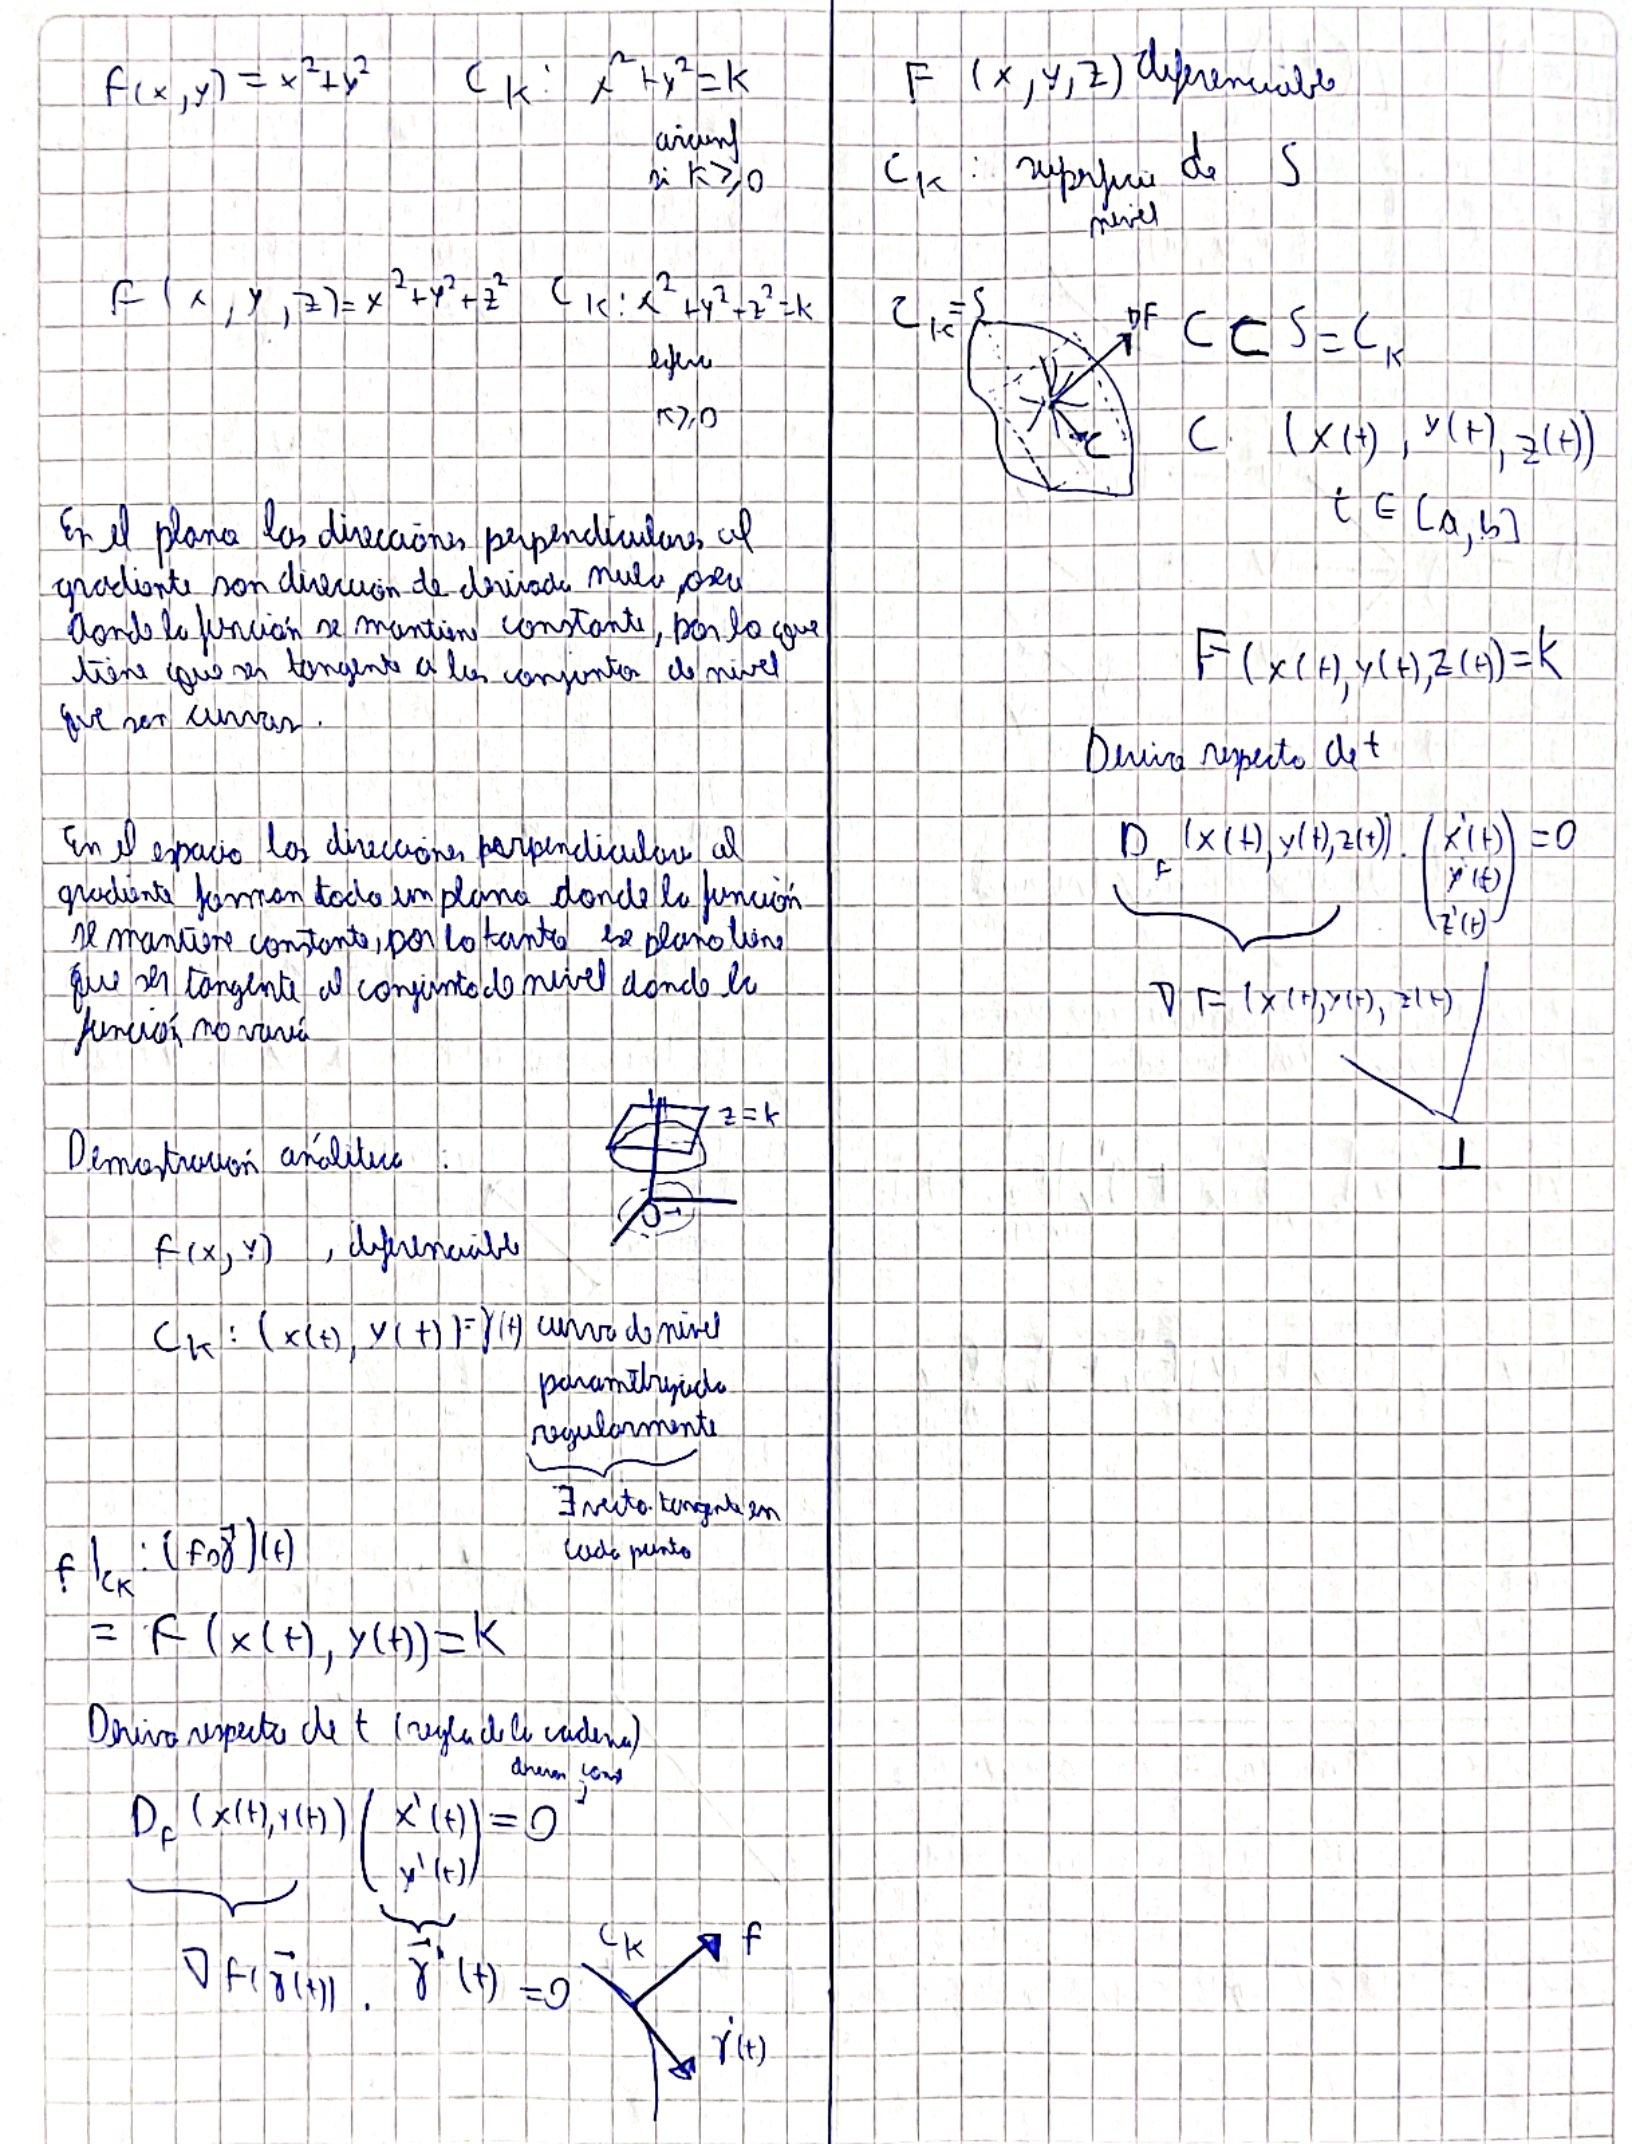 f(x,y) = x²+y² C_K: x²+y²=k
circunf
si K≥0
F(x,y,z)=x²+y²+z² C_K: x²+y²+z²=k
esfera
K≥0
En el plano las direcciones perpendiculares al
gradiente son dirección de derivada nula, osea
donde la función se mantiene constante, por lo que
tiene que ser tangente a los conjuntos de nivel
que son curvas.
En el espacio las direcciones perpendiculares al
gradiente forman todo un plano donde la función
se mantiene constante, por lo tanto ese plano tiene
que ser tangente al conjunto de nivel donde la
función no varía
z=k
Demostración análitica :
F(x,y) , diferenciable
C_K : (x(t), y(t))=γ(t) curva de nivel
parametrizada
regularmente
∃ vector tangente en
cada punto
f|_CK : (f∘γ⃗)(t)
= F(x(t), y(t))=K
Derivo respecto de t (regla de la cadena)
const
D_F (x(t),y(t)) (x'(t) y'(t)) = 0
∇F(γ⃗(t)) . γ⃗'(t) =0
C_K
f
γ'(t)
F (x,y,z) diferenciable
C_K : superficie de S
nivel
C_K=S
∇F
C
C ⊂ S=C_K
C. (x(t), y(t), z(t))
t ∈ [a,b]
F(x(t),y(t),z(t))=K
Derivo respecto de t
D_F (x(t),y(t),z(t)). (x'(t) y'(t) z'(t)) =0
∇F=(x(t),y(t),z(t)
⊥